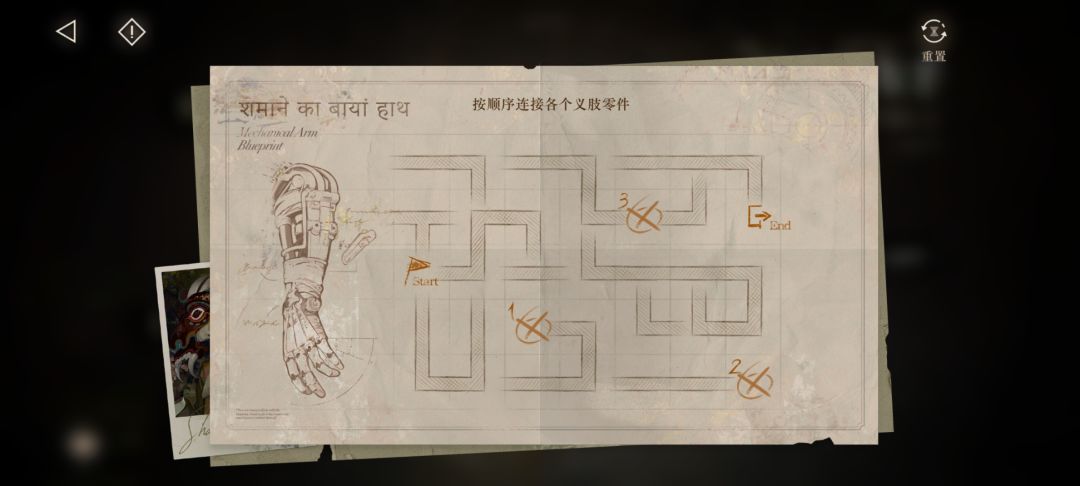 重置
शमाने का बायां हाथ
按顺序连接各个义肢零件
Mechanical Arm
Blueprint
3
End
Start
1
2